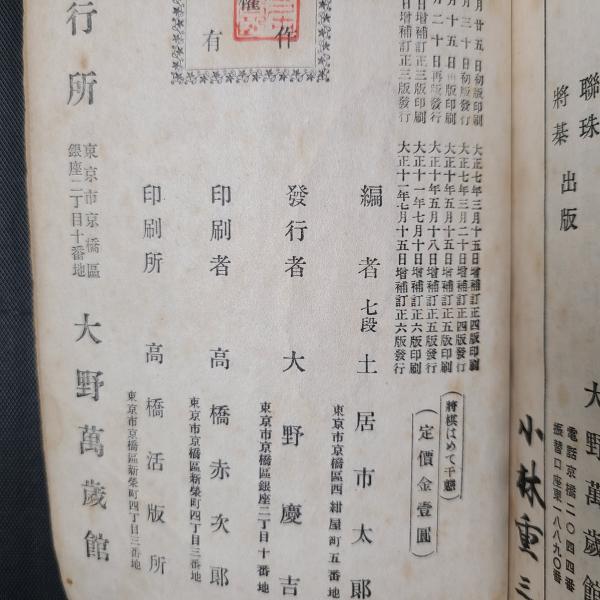 聯珠
將棊 出版
大野萬歲館
電話京橋二〇四四番
振替口座東一八八九〇番
小林重三
月廿五日初版印刷
月三十日初版發行
月十五日再版印刷
月二十日再版發行
日增補訂正三版印刷
日增補訂正三版發行
大正七年三月十五日增補訂正四版印刷
大正七年三月二十日增補訂正四版發行
大正十年五月十五日增補訂正五版印刷
大正十年五月十八日增補訂正五版發行
大正十一年七月十日增補訂正六版印刷
大正十一年七月十五日增補訂正六版發行
將棋はめて千態
定價金壹圓
作
有
編者 七段 土居市太郎
東京市京橋區西紺屋町五番地
發行者 大野慶吉
東京市京橋區銀座二丁目十番地
印刷者 高橋赤次郎
東京市京橋區新榮町四丁目三番地
印刷所 高橋活版所
東京市京橋區新榮町四丁目三番地
行所
東京市京橋區
銀座二丁目十番地
大野萬歲館